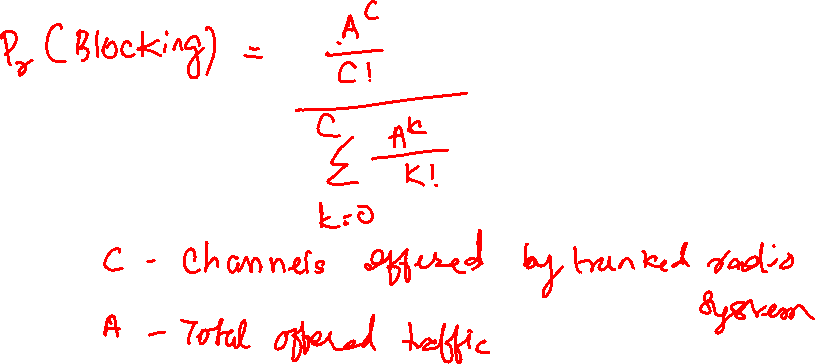 Pr (Blocking) = \frac{\frac{A^C}{C!}}{\sum_{k=0}^{C} \frac{A^k}{k!}}
C - Channels offered by trunked radio
system
A - Total offered traffic